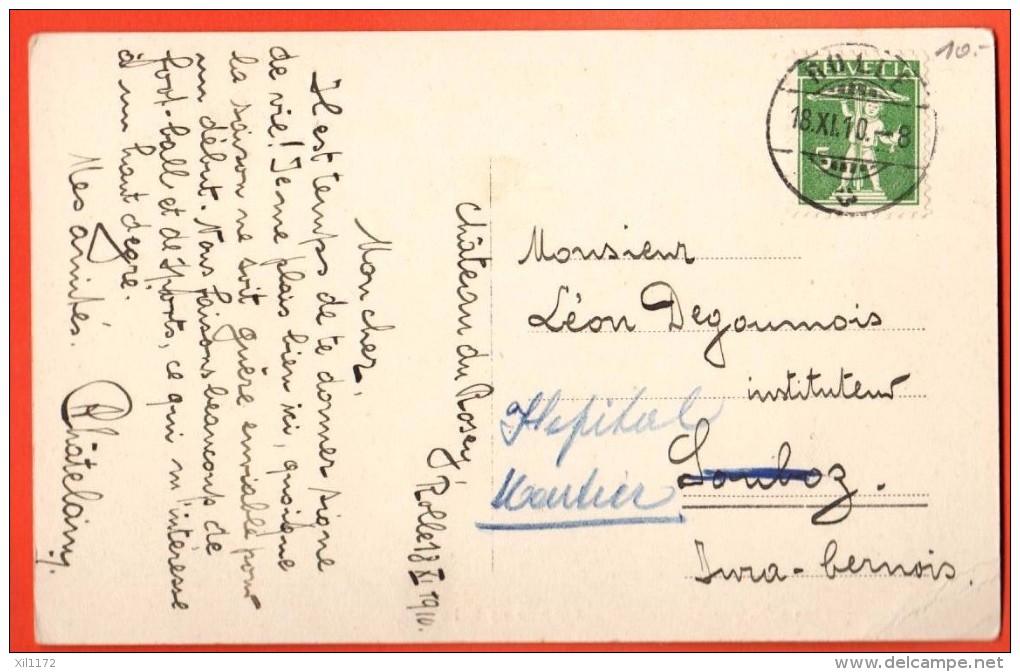 Château du Rosey, Rolle 18 XI 1910.
Mon cher,
Il est temps de te donner signe
de vie! Je me plais bien ici, quoique
la saison ne soit guère enviable pour
un début. Nous faisons beaucoup de
foot-ball et de sports, ce qui m'intéresse
à un haut degré.
Mes amitiés.
Châtelain.
10.-
HELVETIA
5
ROLLE
18.XI.10.-8
Monsieur
Léon Degoumois
instituteur
Souboz.
Hopital
Moutier
Jura-bernois.
xil1172
www.delcampe.net